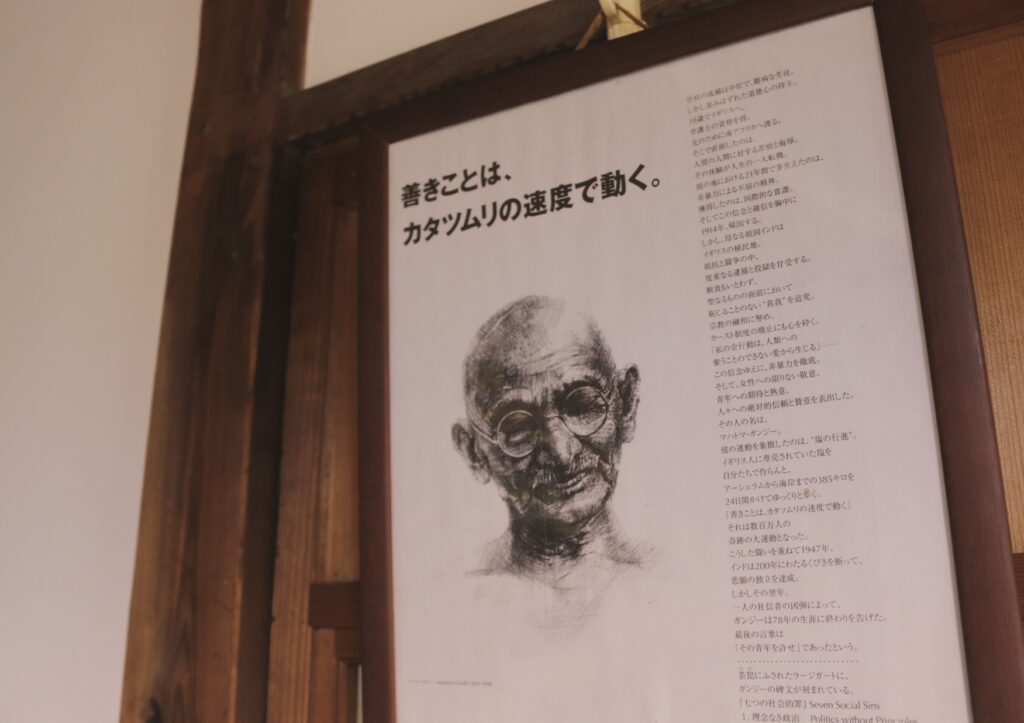 善きことは、
カタツムリの速度で動く。
学校の成績は中位で、臆病な生徒。
しかし並みはずれた道徳心の持主。
18歳でイギリスへ。
弁護士の資格を得、
友のために南アフリカへ渡る。
そこで直面したのは、
人間の人間に対する差別と侮辱。
その体験が人生の一大転機。
彼の地における21年間で芽生えたのは、
非暴力による不屈の精神。
獲得したのは、国際的な賞讃。
そしてこの信念と確信を胸中に
1914年、帰国する。
しかし、母なる祖国インドは
イギリスの植民地。
抵抗と闘争の中、
度重なる逮捕と投獄を甘受する。
断食もいとわず。
聖なるものの面前において
恥じることのない“真我”を追究。
宗教の融和に努め、
カースト制度の廃止にも心を砕く。
「私の全行動は、人類への
奪うことのできない愛から生じる」——
この信念ゆえに、非暴力を徹底。
そして、女性への限りない敬意、
青年への期待と熱意、
人々への絶対的信頼と賛意を表出した。
その人の名は、
マハトマ・ガンジー。
彼の運動を象徴したのは、“塩の行進”。
イギリス人に専売されていた塩を
自分たちで作らんと、
アーシュラムから海岸までの385キロを
24日間かけてゆっくりと歩く。
「善きことは、カタツムリの速度で動く」
それは数百万人の
奇跡の大運動となった。
こうした闘いを重ねて1947年、
インドは200年にわたるくびきを断って、
悲願の独立を達成。
しかしその翌年、
一人の狂信者の凶弾によって、
ガンジーは78年の生涯に終わりを告げた。
最後の言葉は
「その青年を許せ」であったという。
荼毘にふされたラージガートに、
ガンジーの碑文が刻まれている。
「七つの社会的罪」 Seven Social Sins
1. 理念なき政治 Politics without Principles